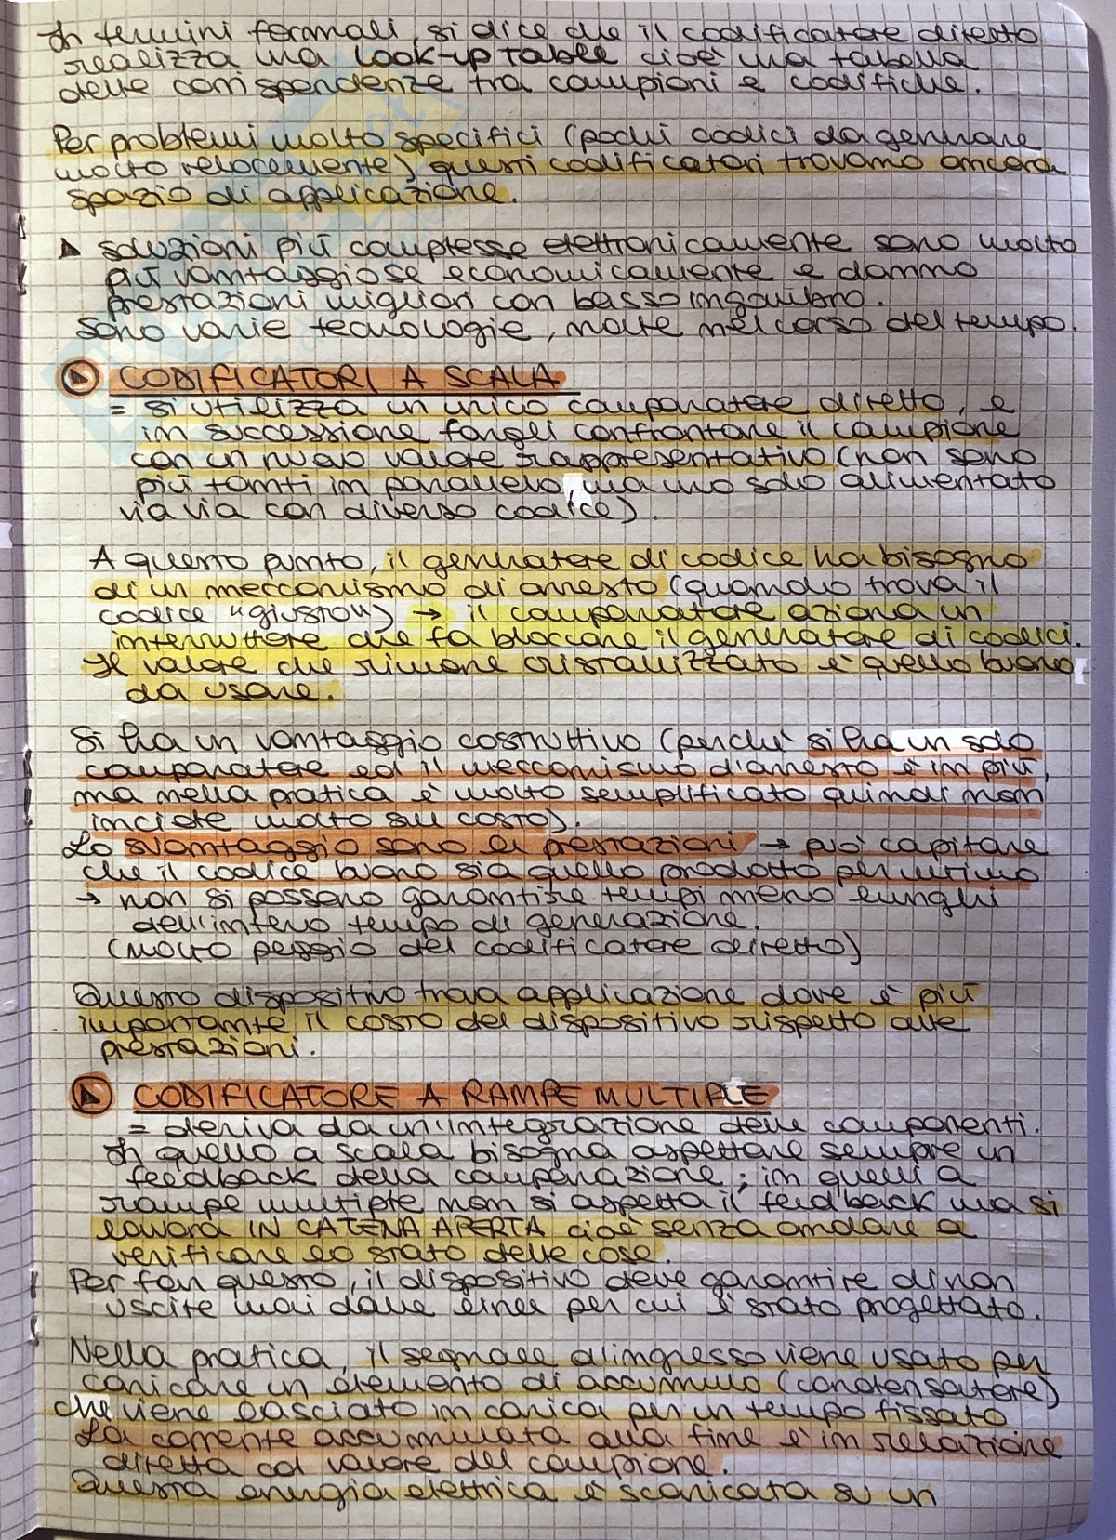 In termini formali, si dice che il codificatore diretto
realizza una look-up Table cioè una tabella
delle corrispondenze tra campioni e codifiche.
Per problemi molto specifici (pochi codici da generare
molto velocemente) questi codificatori trovano ancora
spazio di applicazione.
soluzioni più complesse elettronicamente sono molto
più vantaggiose economicamente e danno
prestazioni migliori con basso ingombro.
Sono varie tecnologie, nate nel corso del tempo.
CODIFICATORI A SCALA
= si utilizza un unico comparatore diretto, e
in successione fargli confrontare il campione
con un nuovo valore rappresentativo (non sono
più tanti in parallelo, ma uno solo alimentato
via via con diverso codice).
A questo punto, il generatore di codice ha bisogno
di un meccanismo di arresto (quando trova il
codice "giusto") → il comparatore aziona un
interruttore che fa bloccare il generatore di codici.
Il valore che rimane cristallizzato è quello buono
da usare.
Si ha un vantaggio costruttivo (perchè si ha un solo
comparatore ed il meccanismo d'arresto è in più,
ma nella pratica è molto semplificato quindi non
incide molto sul costo).
Lo svantaggio sono le prestazioni → può capitare
che il codice buono sia quello prodotto per ultimo
→ non si possono garantire tempi meno lunghi
dell'intero tempo di generazione.
(molto peggio del codificatore diretto)
Questo dispositivo trova applicazione dove è più
importante il costo del dispositivo rispetto alle
prestazioni.
CODIFICATORE A RAMPE MULTIPLE
= deriva da un'integrazione delle componenti.
In quello a scala bisogna aspettare sempre un
feedback della comparazione; in quelli a
rampe multiple non si aspetta il feedback ma si
lavora IN CATENA APERTA cioè senza andare a
verificare lo stato delle cose.
Per far questo, il dispositivo deve garantire di non
uscire mai dalle linee per cui è stato progettato.
Nella pratica, il segnale d'ingresso viene usato per
caricare un elemento di accumulo (condensatore)
che viene lasciato in carica per un tempo fissato
La corrente accumulata alla fine è in relazione
diretta col valore del campione.
Questa energia elettrica è scaricata su un